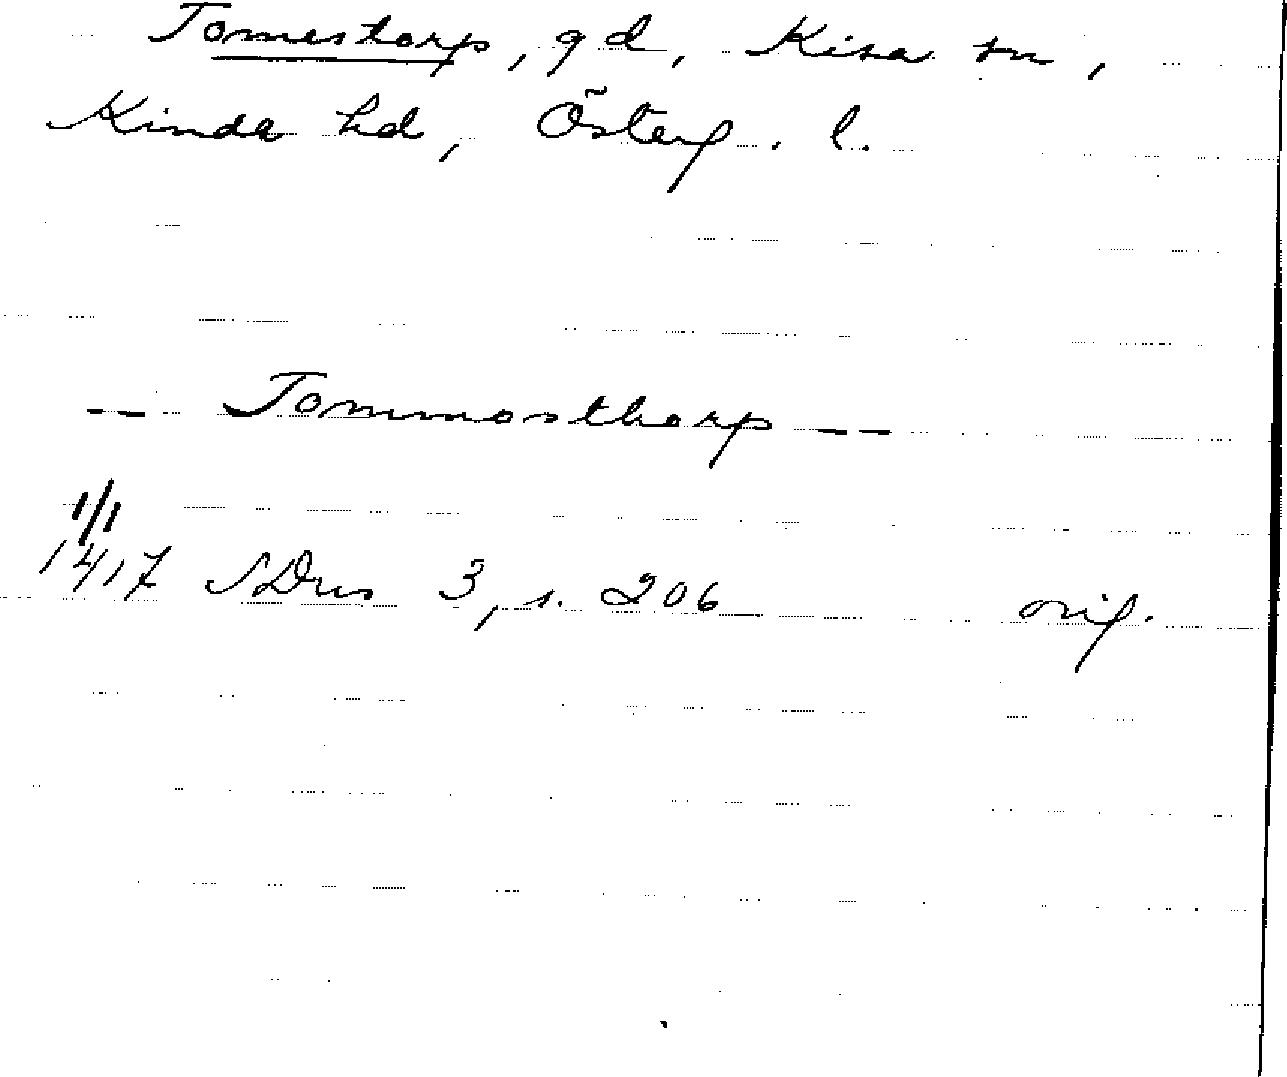 Tomestorp, gd, Kisa sn,
Kinda hd, Österg. l.
-- Tommosthorp --
1/1
1417 SDns 3, s. 206 orig.